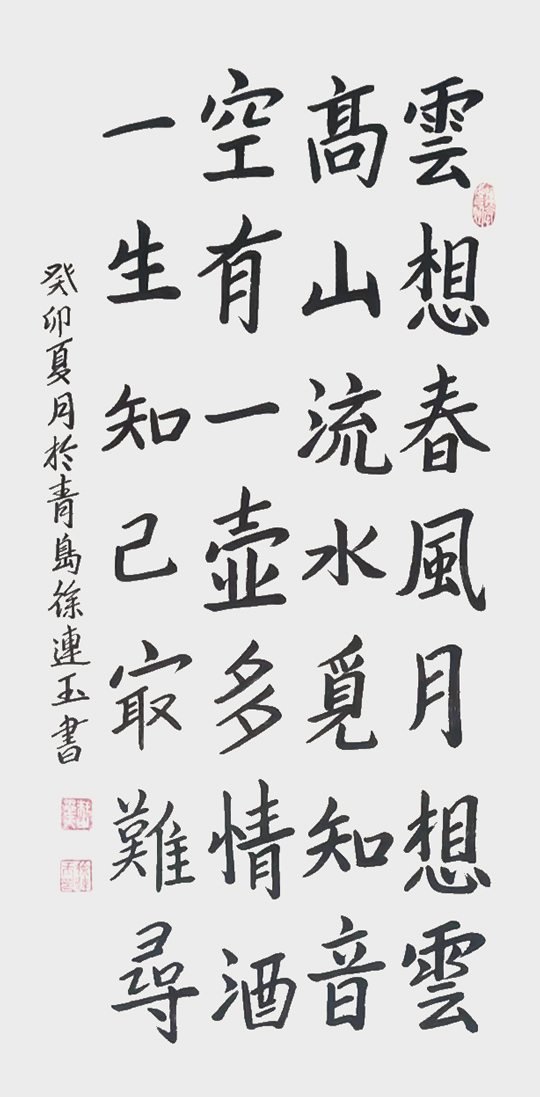 雲想春風月想雲
髙山流水覓知音
空有一壺多情酒
一生知己㝡難尋
癸卯夏月於青島徐連玉書